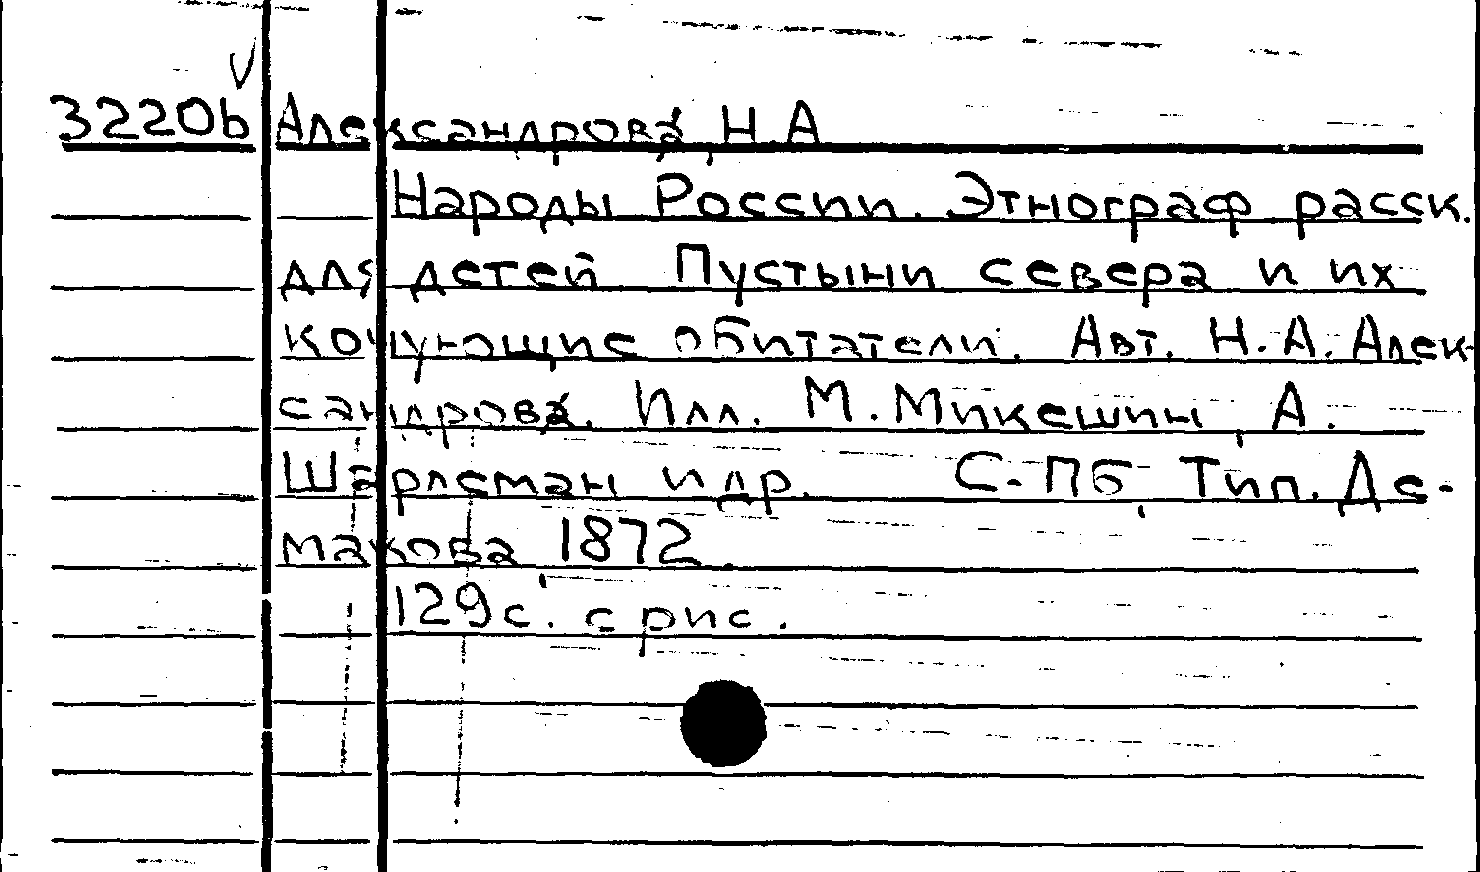 3220b Александрова, Н.А
Народы России. Этнограф. расск.
для детей Пустыни севера и их
кочующие обитатели. Авт. Н.А. Алек-
сандрова. Илл. М. Микешин, А.
Шарлеман и др. С-Пб, Тип. Де-
макова, 1872.
129с. с рис.